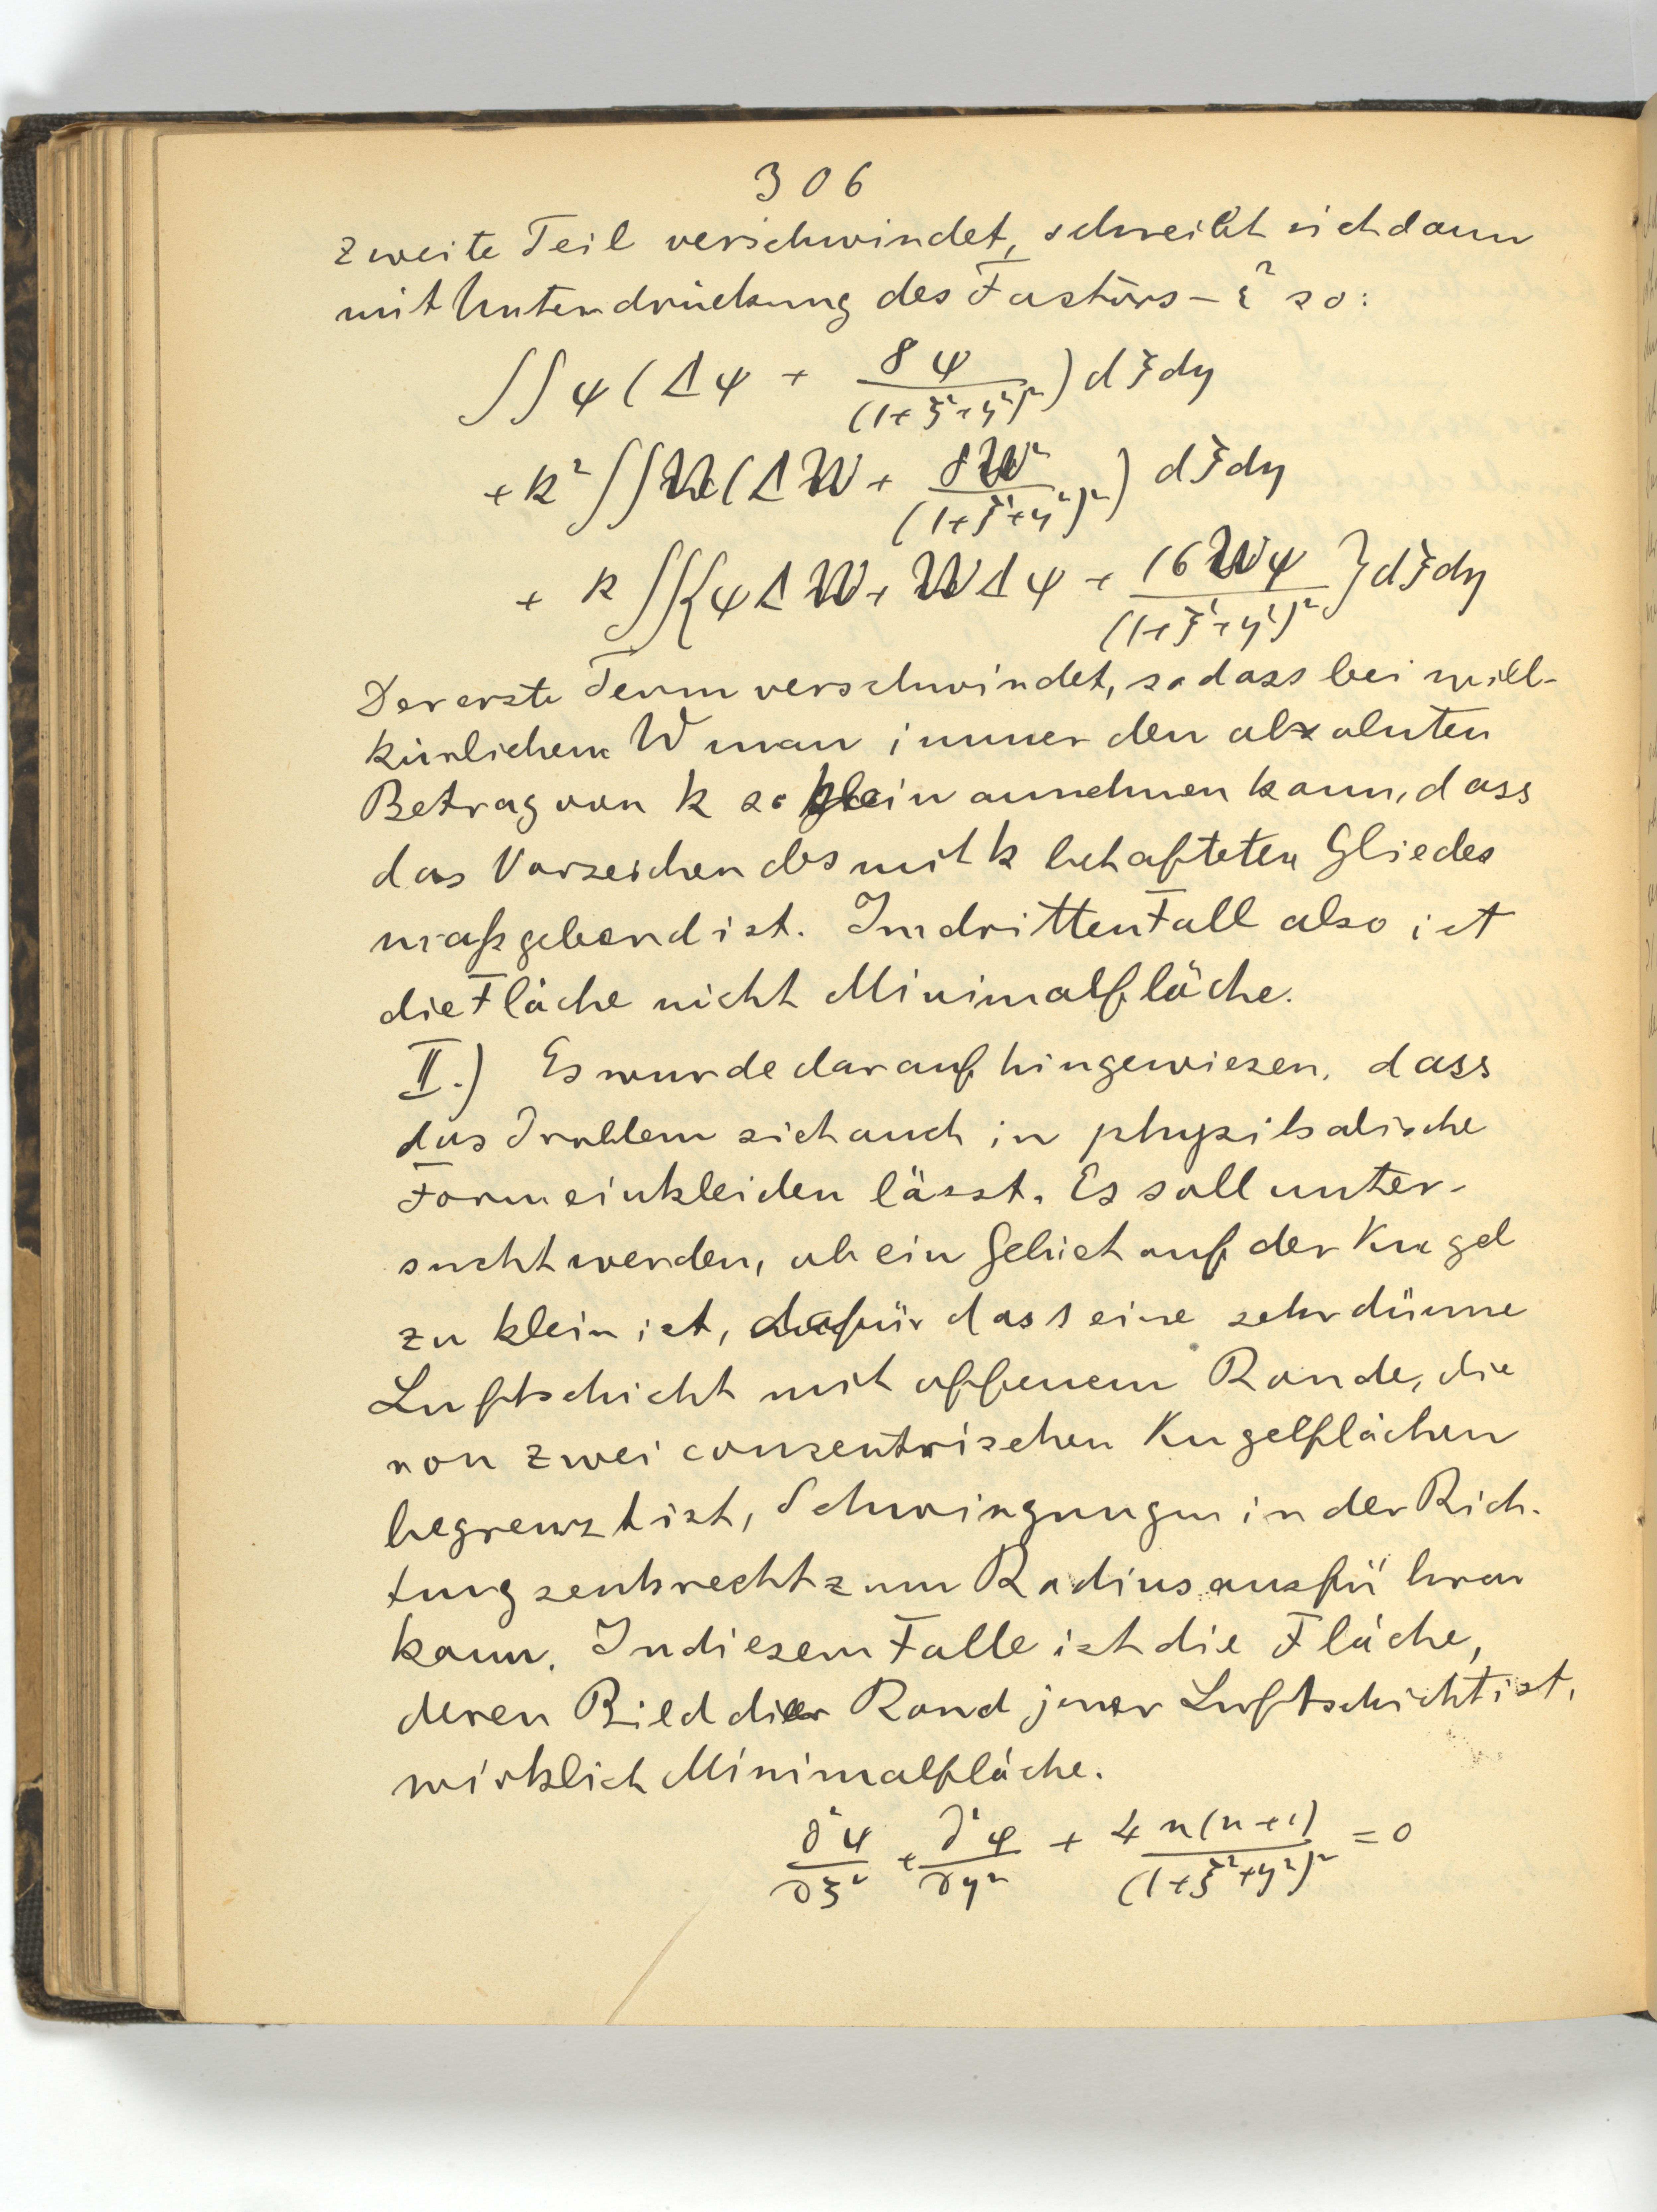 306
zweite Teil verschwindet, schreibt sich dann
mit Unterdrückung des Factors - ε² so:
∫∫ψ(Δψ + 8ψ/(1+ξ²+η²)²) dξdη
+k²∫∫W(ΔW + 8W²/(1+ξ²+η²)²) dξdη
+ k∫∫{ψΔW + WΔψ + 16Wψ/(1+ξ²+η²)²}dξdη
Der erste Term verschwindet, sodass bei will-
kürlichem W man immer den absoluten
Betrag von k so klein annehmen kann, dass
das Vorzeichen des mit k behafteten Gliedes
maßgebend ist. Im dritten Fall also ist
die Fläche nicht Minimalfläche.
II.) Es wurde darauf hingewiesen, dass
das Problem sich auch in physikalische
Form einkleiden lässt. Es soll unter-
sucht werden, ob ein Gebiet auf der Kugel
zu klein ist, dafür dass eine sehr dünne
Luftschicht mit offenem Rande, die
von zwei conzentrischen Kugelflächen
begrenzt ist, Schwingungen in der Rich-
tung senkrecht zum Radius ausführen
kann. In diesem Falle ist die Fläche,
deren Bild der Rand jener Luftschicht ist,
wirklich Minimalfläche.
∂²ψ/∂ξ² + ∂²ψ/∂η² + 4n(n+1)/(1+ξ²+η²)² = 0